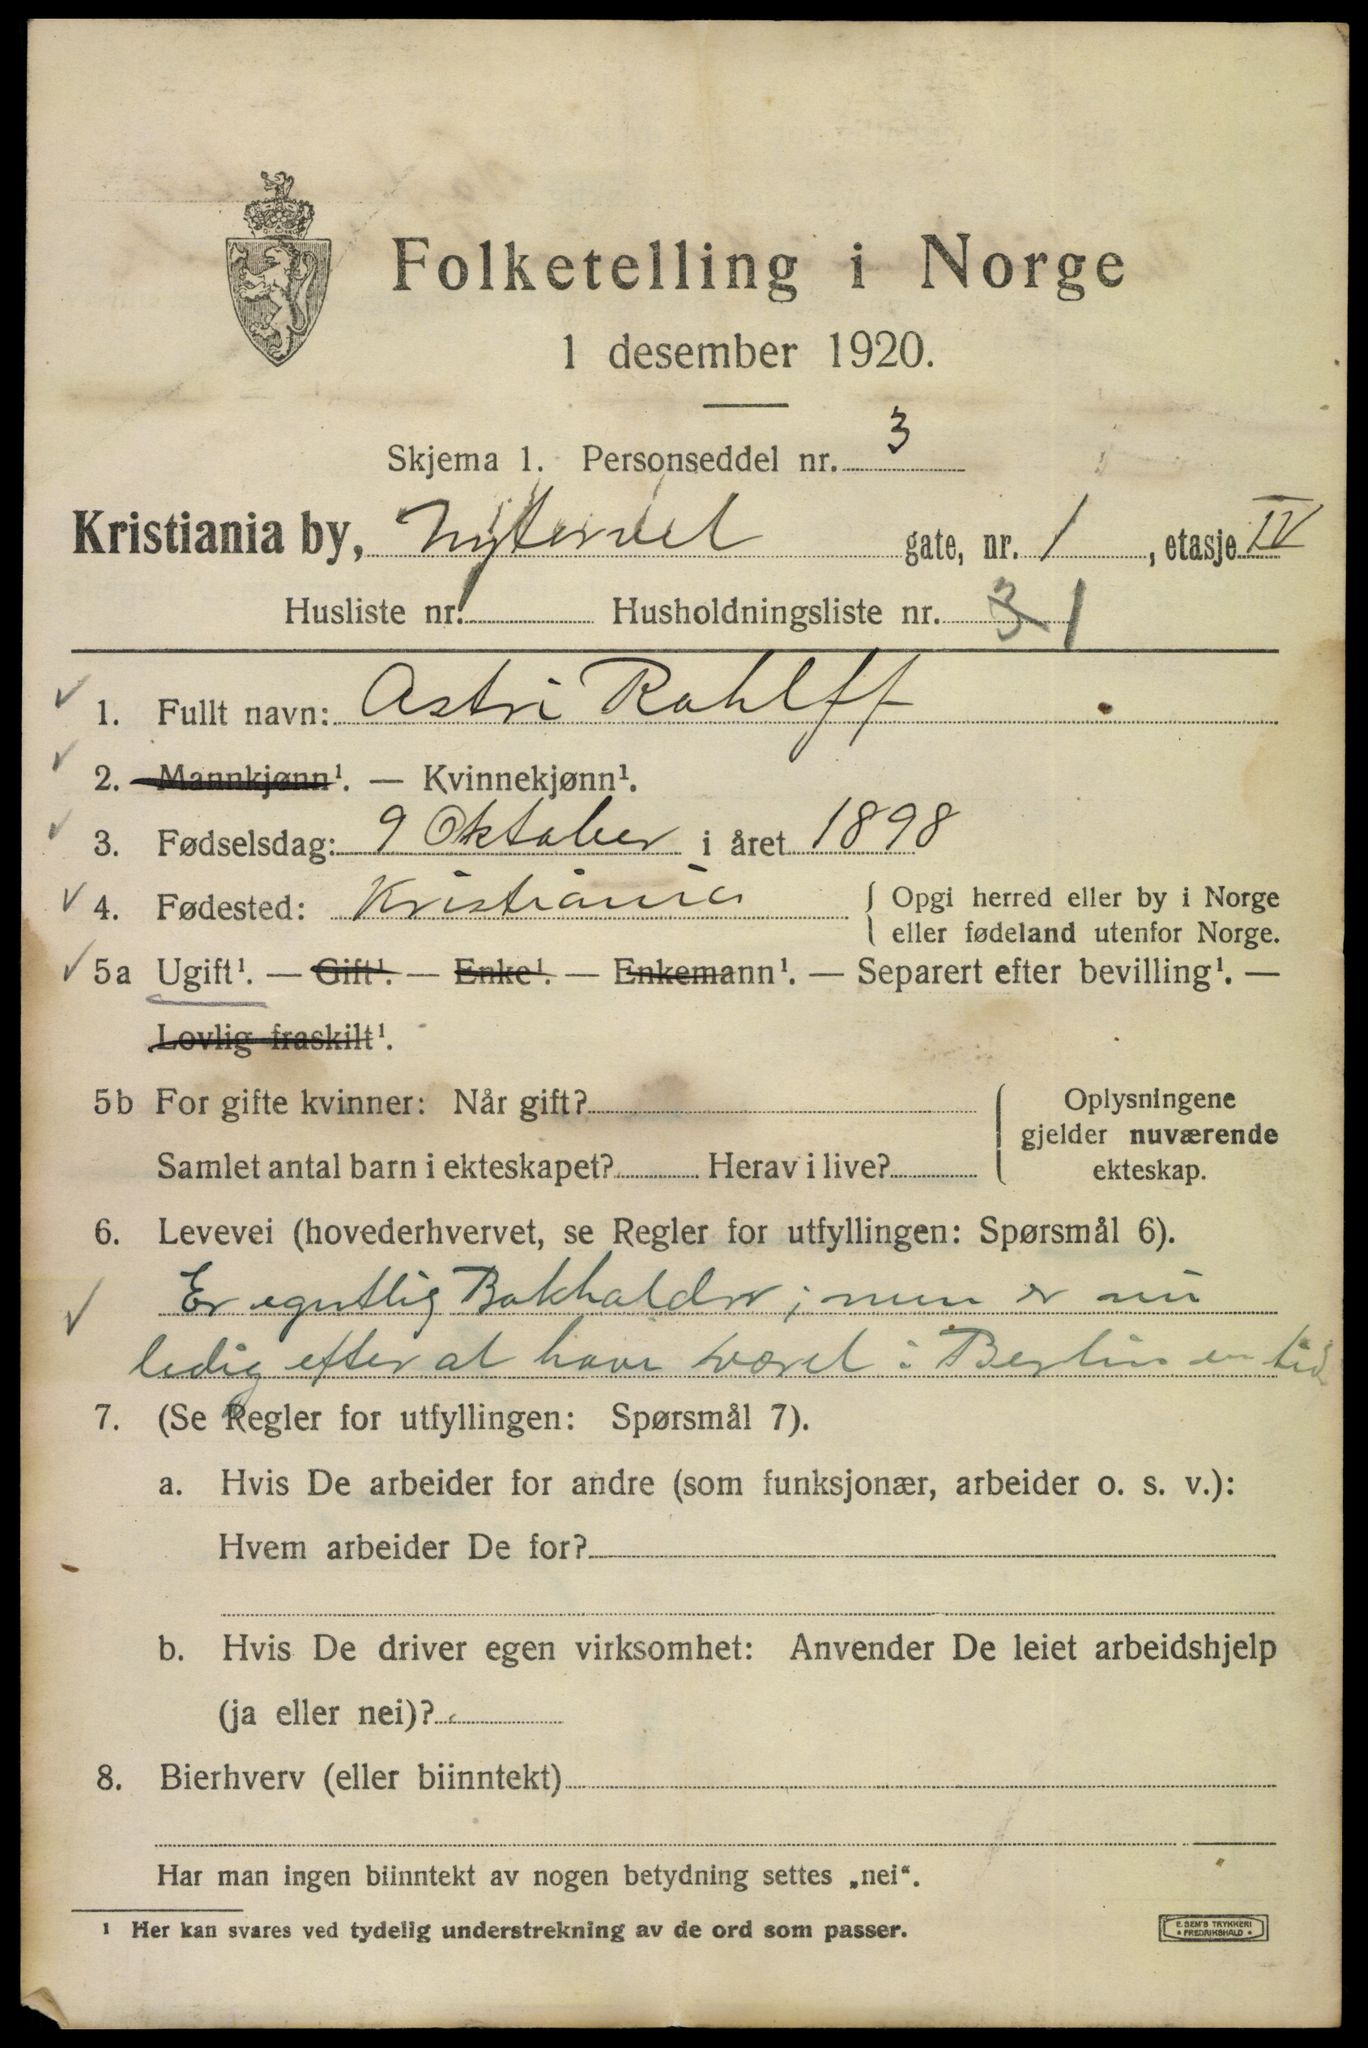 Folketelling i Norge
1 desember 1920.
Skjema 1. Personseddel nr. 3
Kristiania by, Nytorvet gate, nr. 1, etasje IV
Husliste nr. Husholdningsliste nr. 3 1
1. Fullt navn: Astri Rohlff
2. Mannkjønn¹. — Kvinnekjønn¹.
3. Fødselsdag: 9 Oktober i året 1898
4. Fødested: Kristiania { Opgi herred eller by i Norge
eller fødeland utenfor Norge.
5a Ugift¹. — Gift¹. — Enke¹. — Enkemann¹. — Separert efter bevilling¹. —
Lovlig fraskilt¹.
5b For gifte kvinner: Når gift? { Oplysningene
gjelder nuværende
Samlet antal barn i ekteskapet? Herav i live? ekteskap.
6. Levevei (hovederhvervet, se Regler for utfyllingen: Spørsmål 6).
Er egentlig Bokholder, men er nu
ledig efter at have været i Berlin en tid
7. (Se Regler for utfyllingen: Spørsmål 7).
a. Hvis De arbeider for andre (som funksjonær, arbeider o. s. v.):
Hvem arbeider De for?
b. Hvis De driver egen virksomhet: Anvender De leiet arbeidshjelp
(ja eller nei)?
8. Bierhverv (eller biinntekt)
Har man ingen biinntekt av nogen betydning settes „nei“.
¹ Her kan svares ved tydelig understrekning av de ord som passer.
E. SEM'S TRYKKERI
• FREDRIKSHALD •